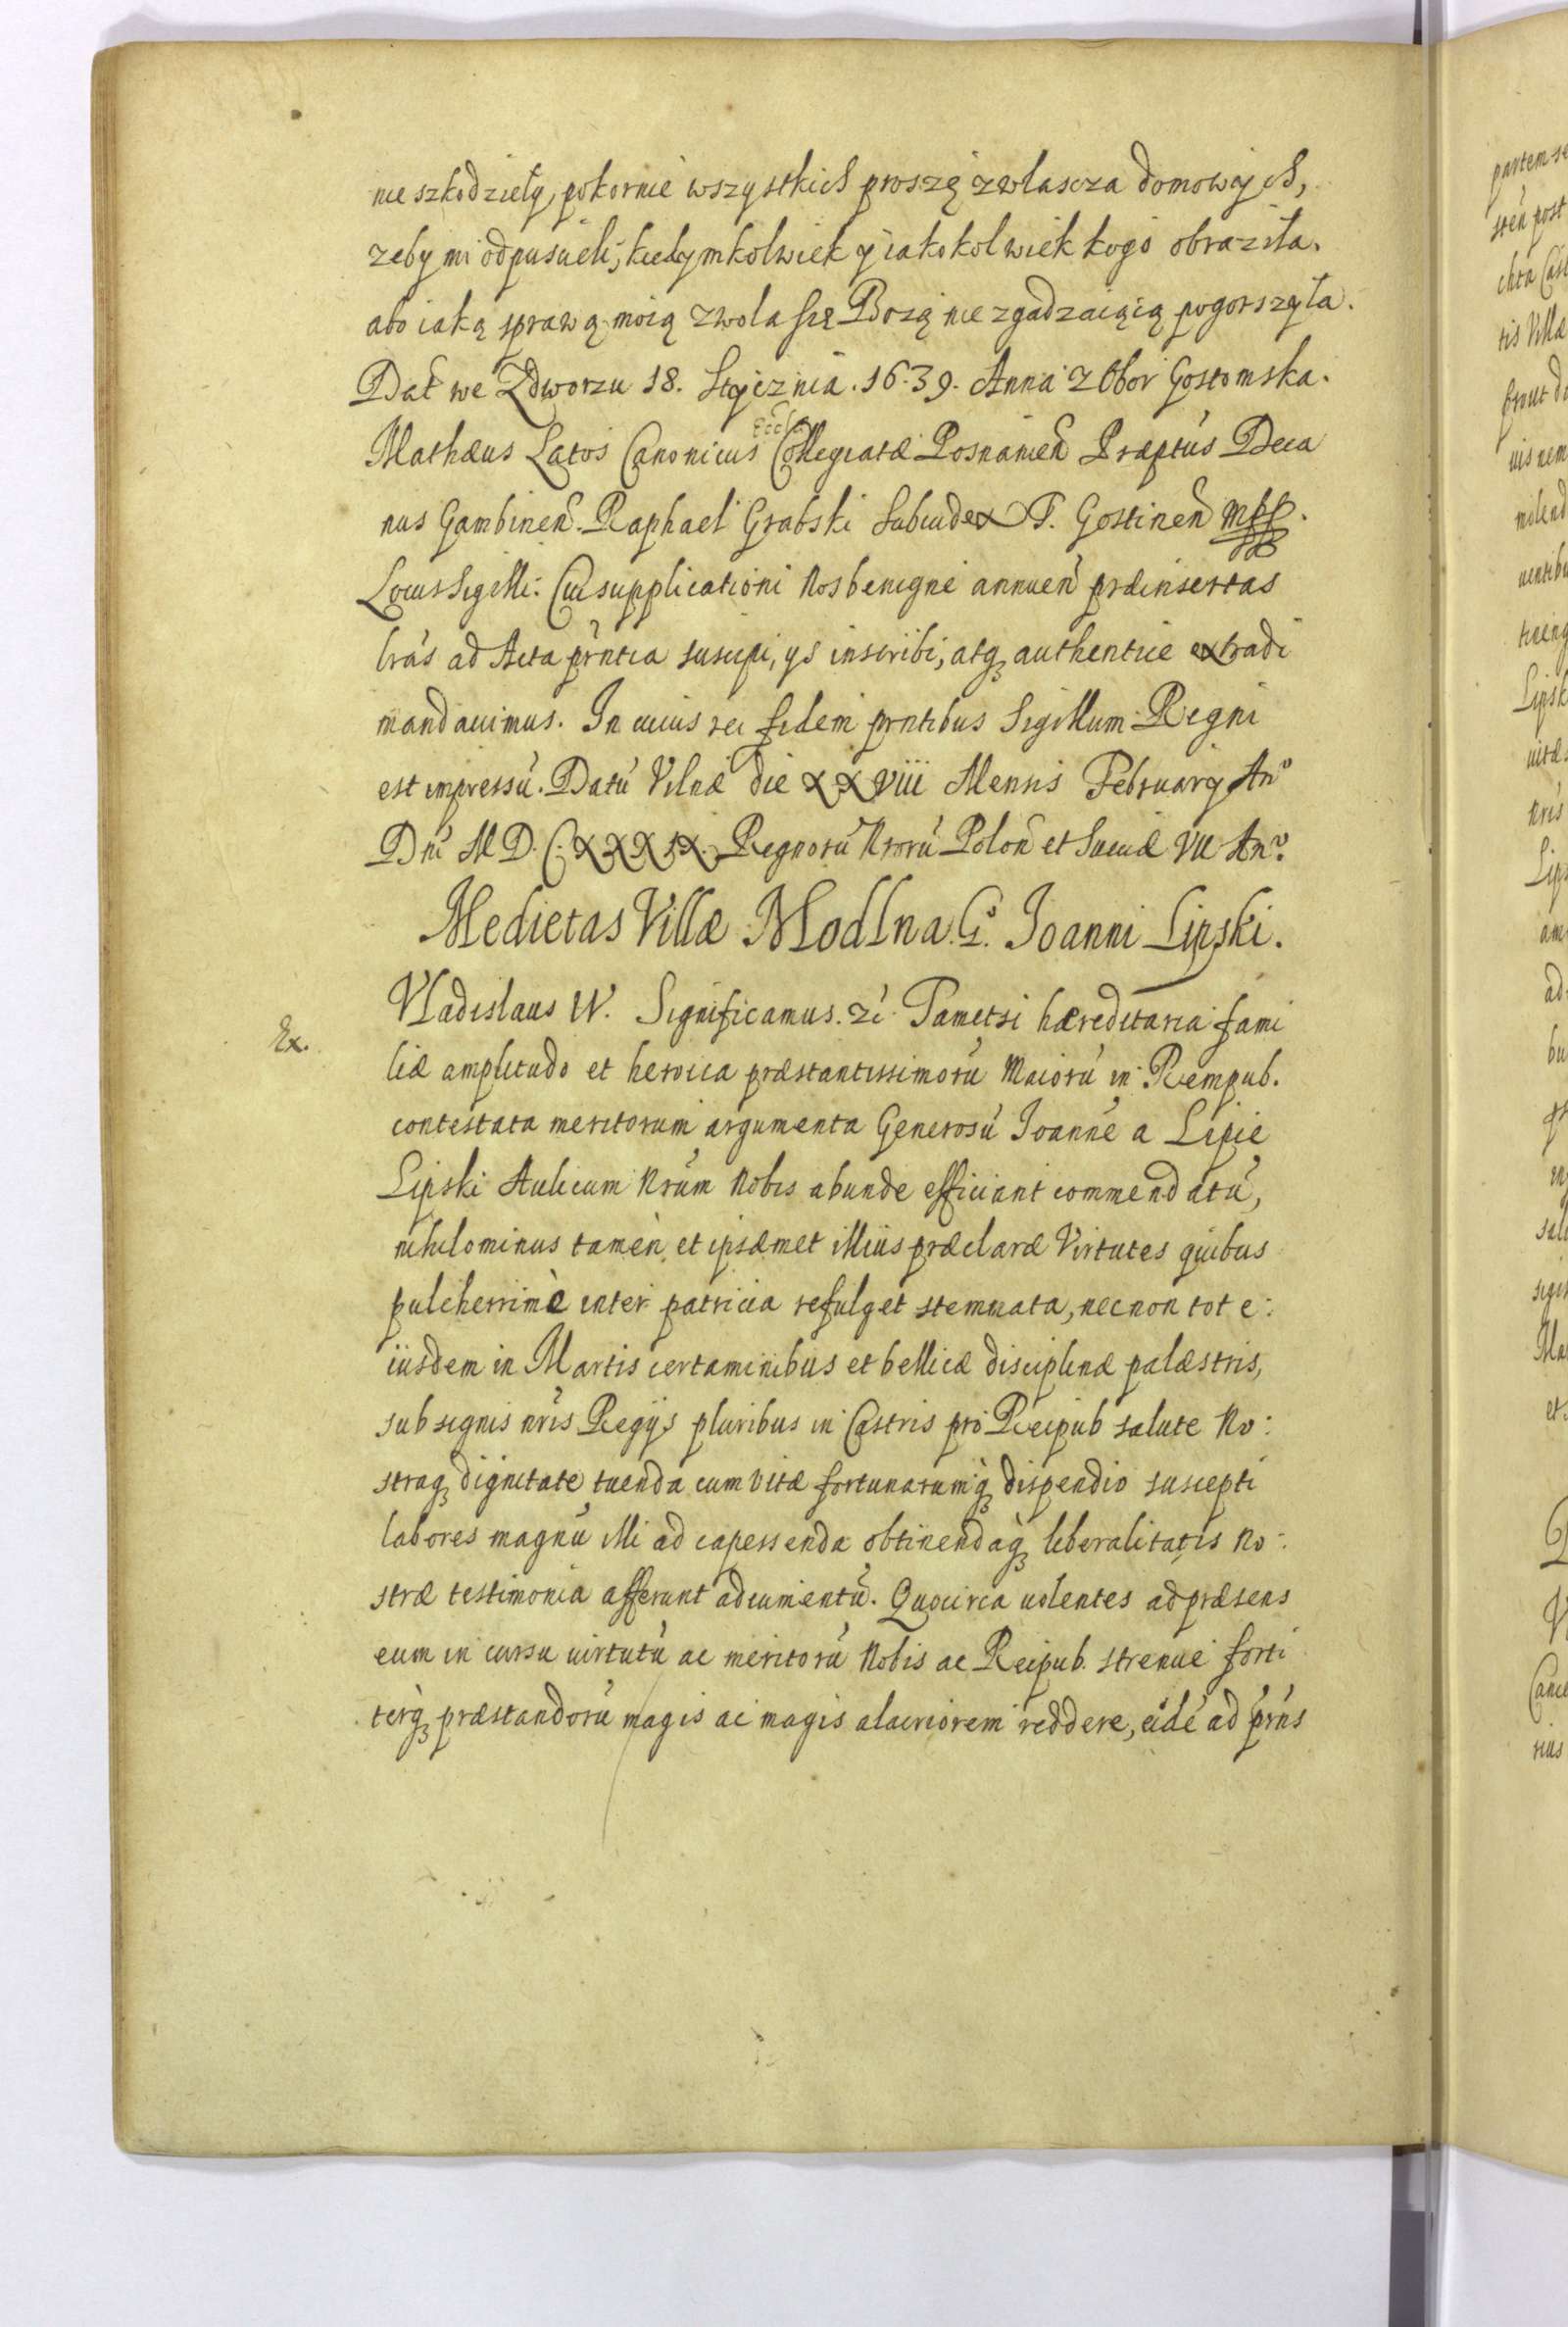 nie szkodzieły, pokornie wszystkich proszę zwlascza domowych,
zeby mi odpuscieli, kiedymkolwiek y iakokolwiek kogo obraziła.
abo iaką sprawą moią zwola się Bozą nie zgadzaiącią pogorszyła.
Dat we Zdworzu 18. Stycznia. 1639. Anna z Obor Gostomska.
Mathæus Latos Canonicus Eccl. Collegiatæ Posnanien Præptus Deca
nus Gambinen. Raphael Grabski Subiudex T. Gostinen mpp.
Locus Sigilli. Cui supplicationi Nos benigne annuen præinsertas
lrás ad Acta prńtia suscipi, ys inscribi, atq authentice extradi
mandauimus. In cuius rei fidem prntibus Sigillum Regni
est impressú. Datú Vilnæ die XXVIII Mensis Februarij Anº
Dnì M D. C. XXXIX. Regnorú Nrorú Polon et Sueciæ VII Anº.
Medietas Villæ Modlna Gº. Joanni Lipski.
Ex.
Vladislaus IV. Significamus. zc. Tametsi hæreditaria fami
liæ amplitudo et heroica præstantissimorú Maiorú in Rempub.
contestata meritorum argumenta Generosú Joannè a Lipie
Lipski Aulicum Nrúm Nobis abunde efficiant commendatú,
nihilominus tamèn et ipsæmet illius præclaræ Virtutes quibus
pulcherrimè inter patricia refulget stemmata, necnon tot e:
iusdem in Martis certaminibus et bellicæ disciplinæ palæstris,
sub signis nrís Regijs pluribus in Castris pro Reipub salute No:
straq dignitate tuenda cum vitæ fortunarumq dispendio suscepti
labores magnú illi ad capessenda obtinendaq liberalitatis No:
stræ testimonia afferunt adiumentú. Quocirca uolentes ad præsens
eum in cursu uirtutú ac meritorú Nobis ac Reipub. strenue forti
terq præstandorú magis ac magis alacriorem reddere, eidé ad prńs